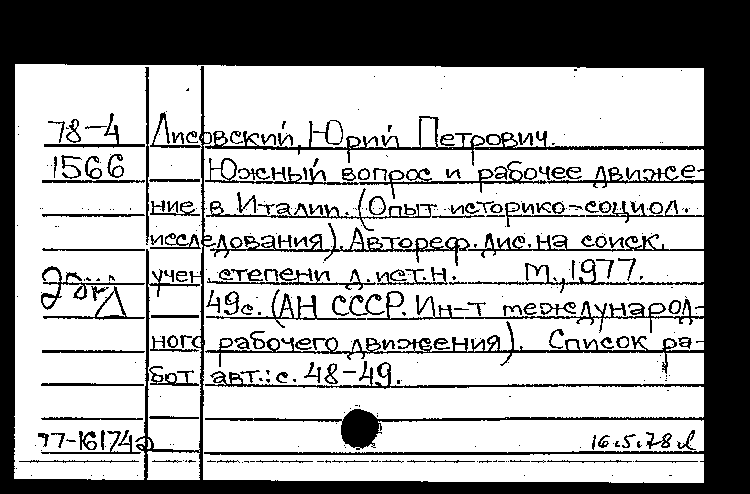 78-4 Лисовский, Юрий Петрович.
1566 Южный вопрос и рабочее движе-
ние в Италии. (Опыт историко-социол.
исследования). Автореф. дис. на соиск.
учен. степени д.ист.н. М., 1977.
49с. (АН СССР. Ин-т международ-
ного рабочего движения). Список ра-
бот авт.: с. 48-49.
77-16174а 16.5.78